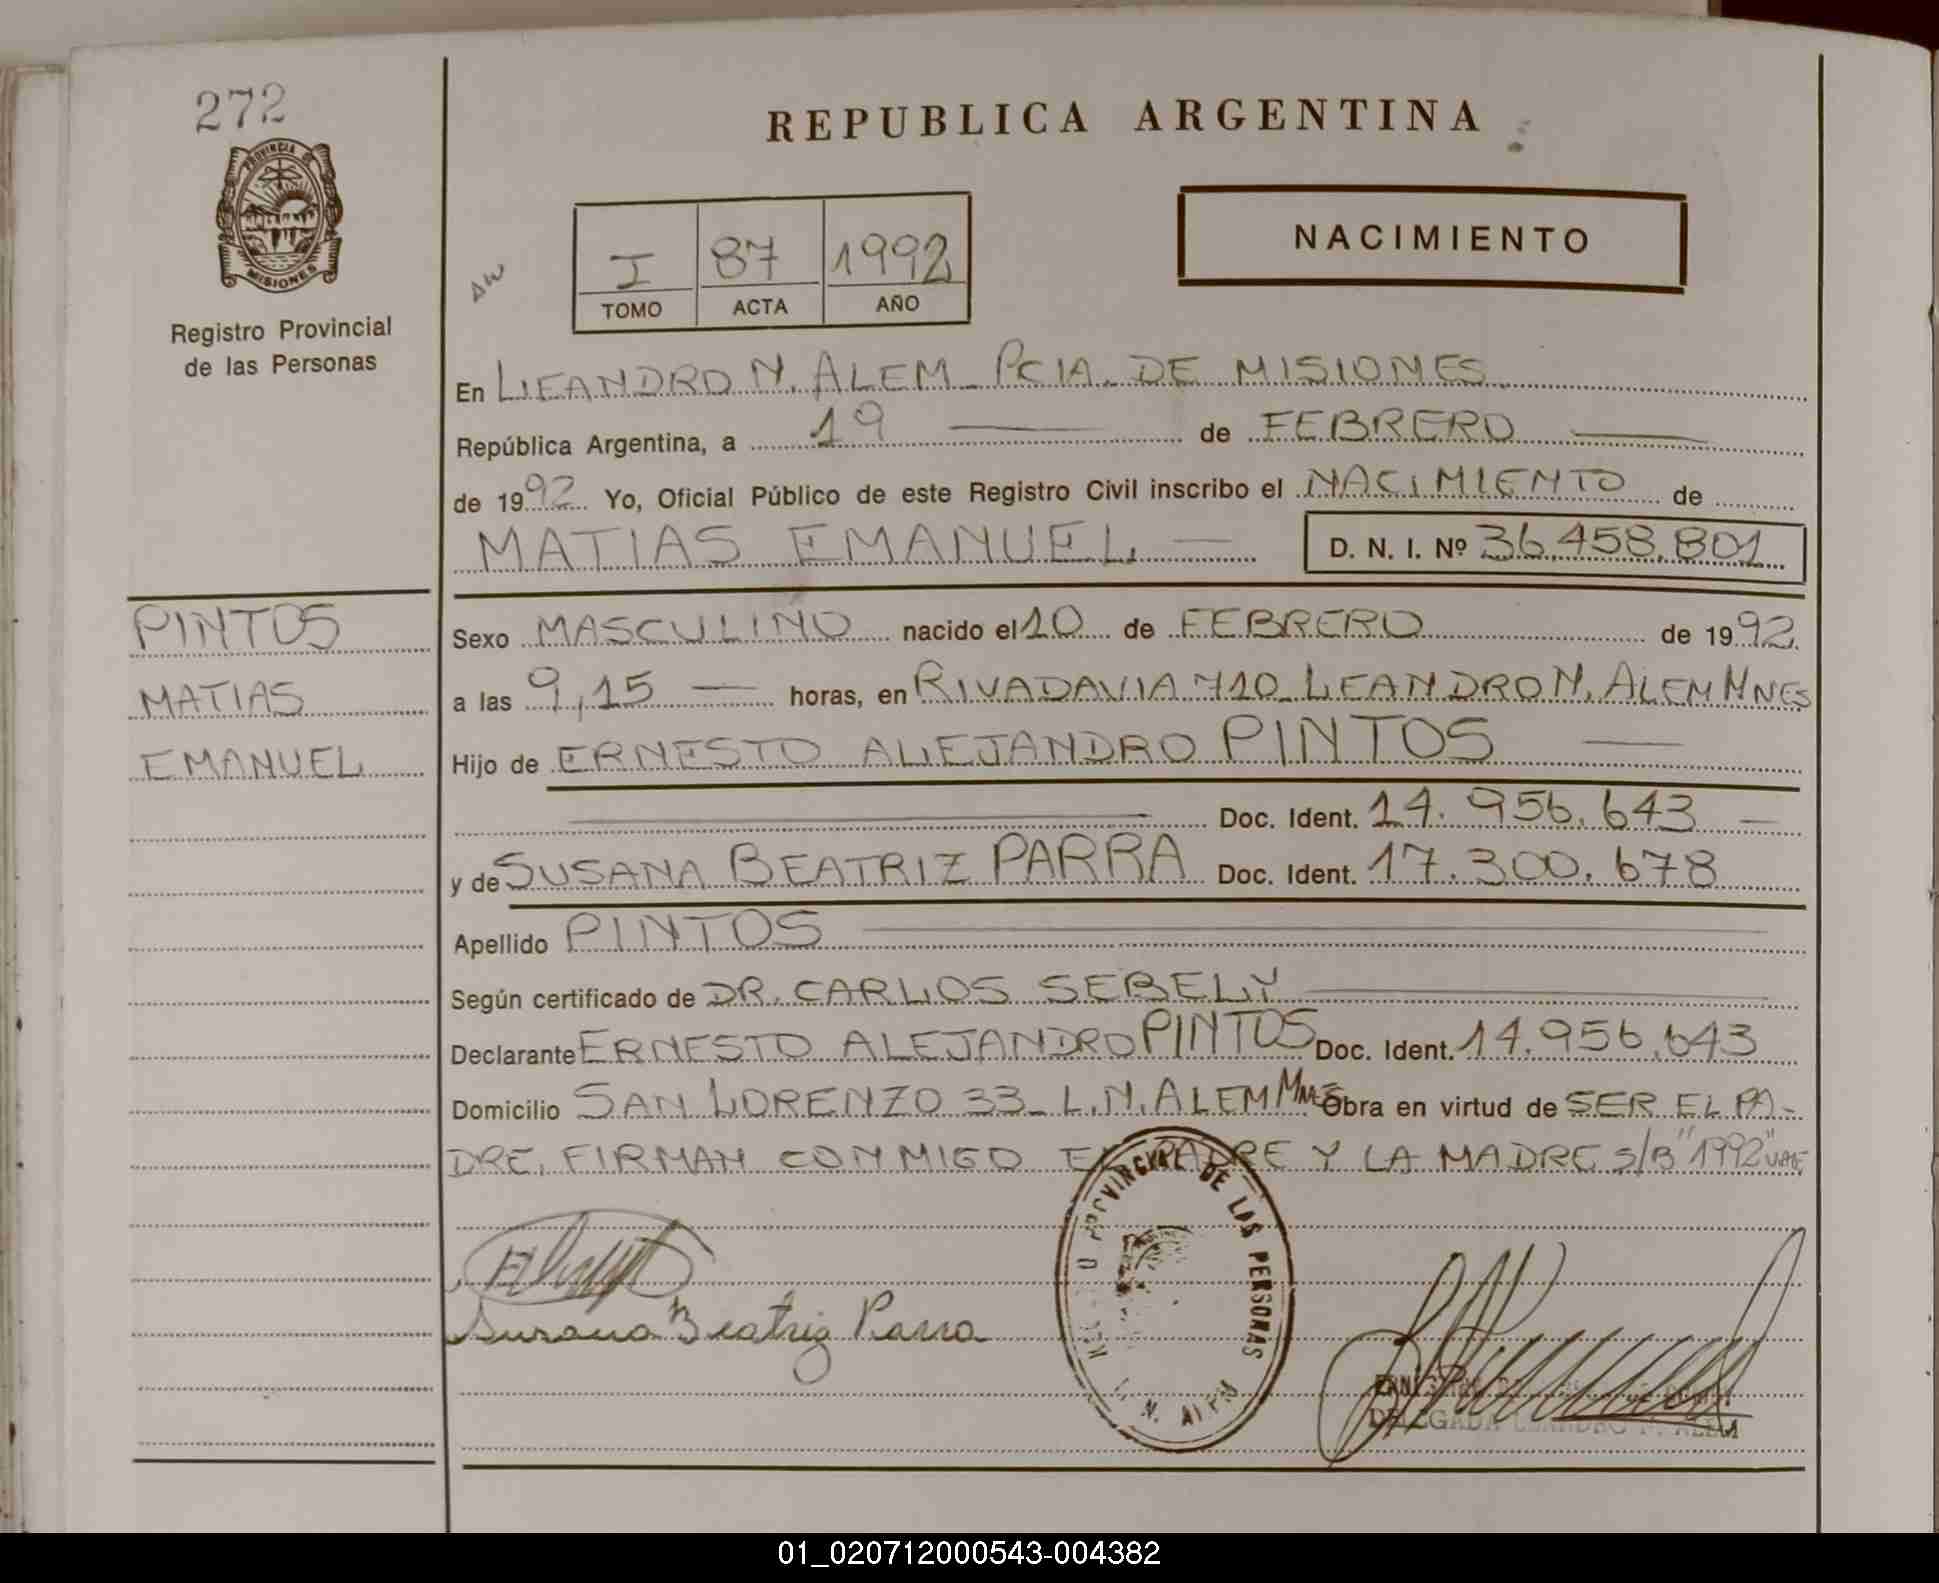 272
PROVINCIA DE
MISIONES
Registro Provincial
de las Personas
REPUBLICA ARGENTINA
I 87 1992
TOMO ACTA AÑO
NACIMIENTO
En LEANDRO N. ALEM - PCIA. DE MISIONES
República Argentina, a 19 — de FEBRERO —
de 1992 Yo, Oficial Público de este Registro Civil inscribo el NACIMIENTO de
MATIAS EMANUEL — D. N. I. Nº 36.458.801
PINTOS
MATIAS
EMANUEL
Sexo MASCULINO nacido el 10 de FEBRERO de 1992.
a las 9,15 — horas, en RIVADAVIA 710 - LEANDRO N. ALEM MNES
Hijo de ERNESTO ALEJANDRO PINTOS —
— Doc. Ident. 14.956.643 —
y de SUSANA BEATRIZ PARRA Doc. Ident. 17.300.678
Apellido PINTOS —
Según certificado de DR. CARLOS SEBELY —
Declarante ERNESTO ALEJANDRO PINTOS Doc. Ident. 14.956.643
Domicilio SAN LORENZO 33 - L.N. ALEM MNES Obra en virtud de SER EL PA-
DRE. FIRMAN CONMIGO EL PADRE Y LA MADRE S/B "1992" VALE
Susana Beatriz Parra
PROVINCIAL DE LAS PERSONAS
L. N. ALEM
DELEGADA LEANDRO N. ALEM
01_020712000543-004382